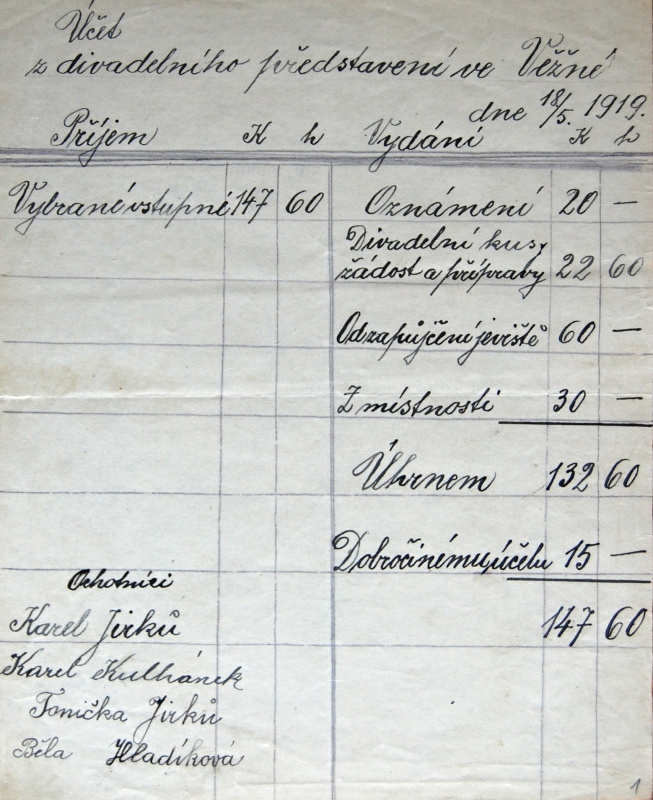 Účet
z divadelního představení ve Věžné
dne 18/5. 1919.
Příjem K h Vydání K h
Vybrané vstupné 147 60 Oznámení 20 —
Divadelní kus,
žádost a přípravy 22 60
Od zapůjčení jeviště 60 —
Z místnosti 30 —
Úhrnem 132 60
Dobročinému účelu 15 —
147 60
Ochotníci
Karel Jirků
Karel Kulhánek
Tonička Jirků
Běla Hladíková
1